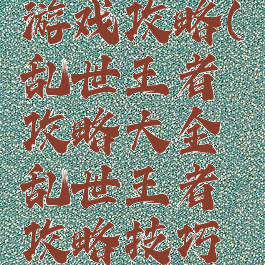 游戏攻略(
乱世王者
攻略大全
乱世王者
攻略技巧